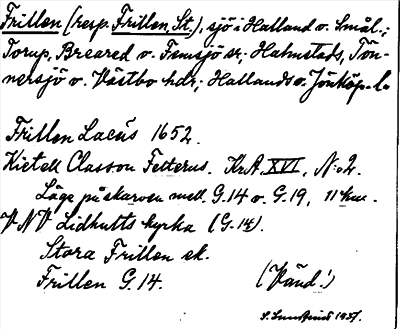 Frillen (resp. Frillen, St.), sjö i Halland o. Smål.;
Torup, Breared o. Femsjö sr; Halmstads, Tön-
nersjö o. Västbo hdr; Hallands o. Jönköp. l.
Frillen Lacus 1652.
Kietell Classon Felterus. KrA XVI, N:o 2.
Läge på skarven mell. G.14 o. G.19, 11 km.
VNV Lidhults kyrka (G.14).
Stora Frillen ek.
Frillen G.14.
(Känd!)
1937.